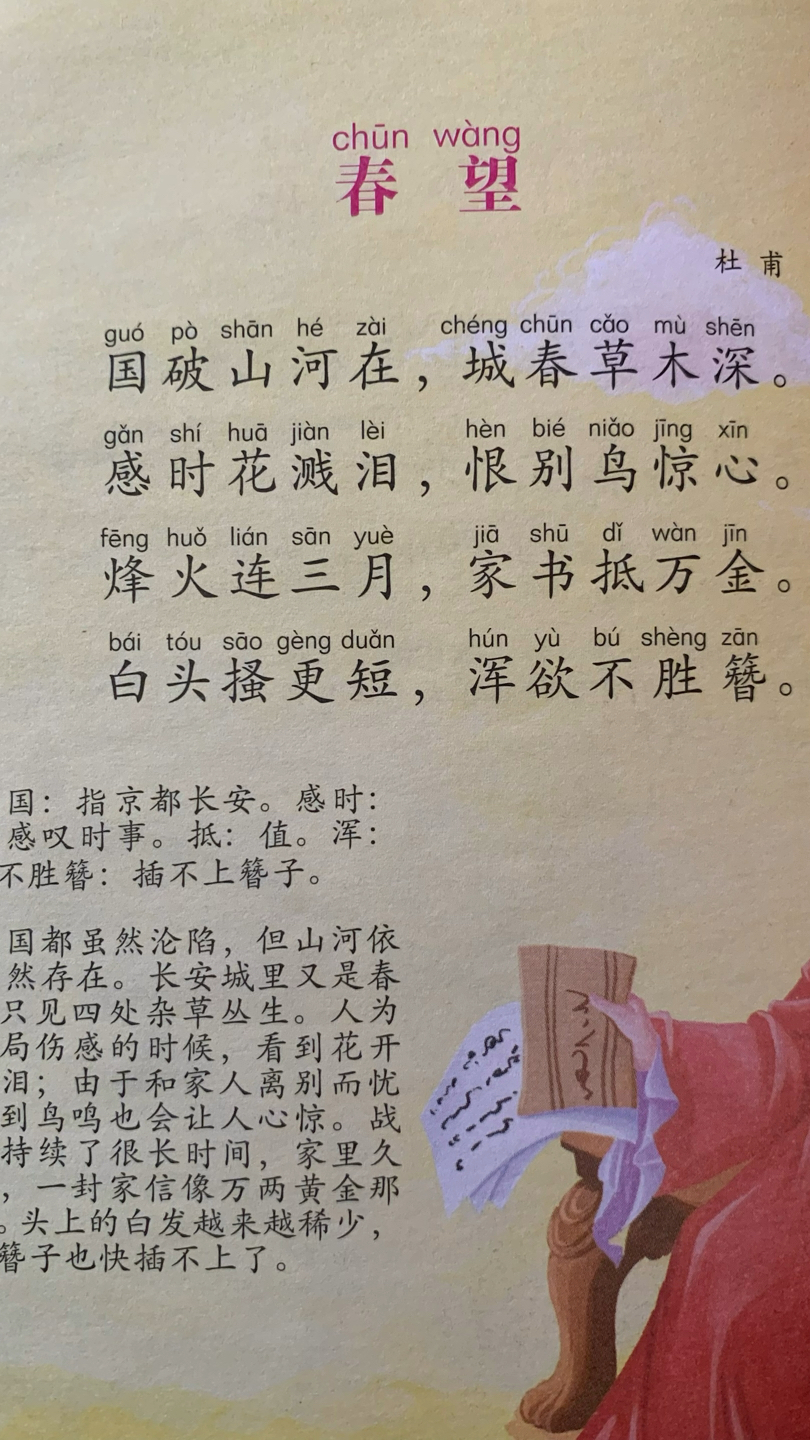 chūn wàng
春 望
杜 甫
guó pò shān hé zài chéng chūn cǎo mù shēn
国破山河在，城春草木深。
gǎn shí huā jiàn lèi hèn bié niǎo jīng xīn
感时花溅泪，恨别鸟惊心。
fēng huǒ lián sān yuè jiā shū dǐ wàn jīn
烽火连三月，家书抵万金。
bái tóu sāo gèng duǎn hún yù bú shèng zān
白头搔更短，浑欲不胜簪。
国：指京都长安。感时：
感叹时事。抵：值。浑：
不胜簪：插不上簪子。
国都虽然沦陷，但山河依
然存在。长安城里又是春
只见四处杂草丛生。人为
局伤感的时候，看到花开
泪；由于和家人离别而忧
到鸟鸣也会让人心惊。战
持续了很长时间，家里久
，一封家信像万两黄金那
。头上的白发越来越稀少，
簪子也快插不上了。